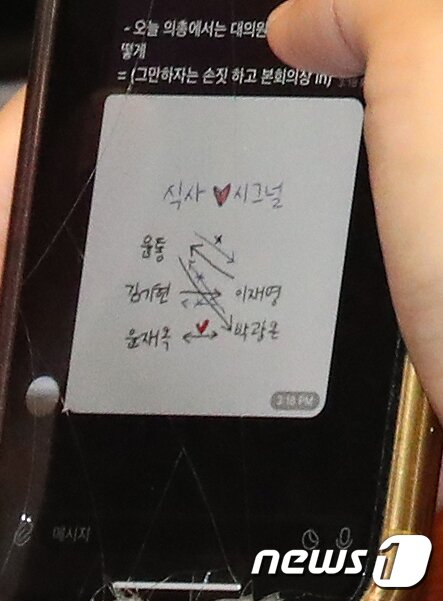 - 오늘 의총에서는 대의원
떻게
= (그만하자는 손짓 하고 본회의상 in)
식사 ♥ 시그널
윤통
김기현 이재명
윤재옥 ♥ 박광온
3:18 PM
메시지
news1